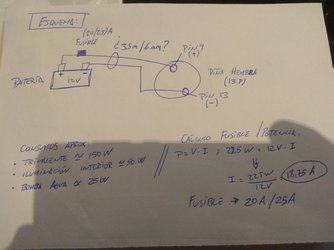 ESQUEMA:
(20/25)A
FUSIBLE
¿35m/6mm²?
PIN 9
(+)
HEMBRA
(13 P)
BATERÍA
12V
PIN 13
(-)
CONSUMOS APROX.
• TRIMUENTE ≃ 150W
• ILUMINACIÓN INTERIOR ≃ 50W
• BOMBA AGUA ≃ 25W
CÁLCULO FUSIBLE / POTENCIA.
P = V · I ; 225W = 12V · I
I = 225W / 12V = 18,75A
FUSIBLE → 20A / 25A